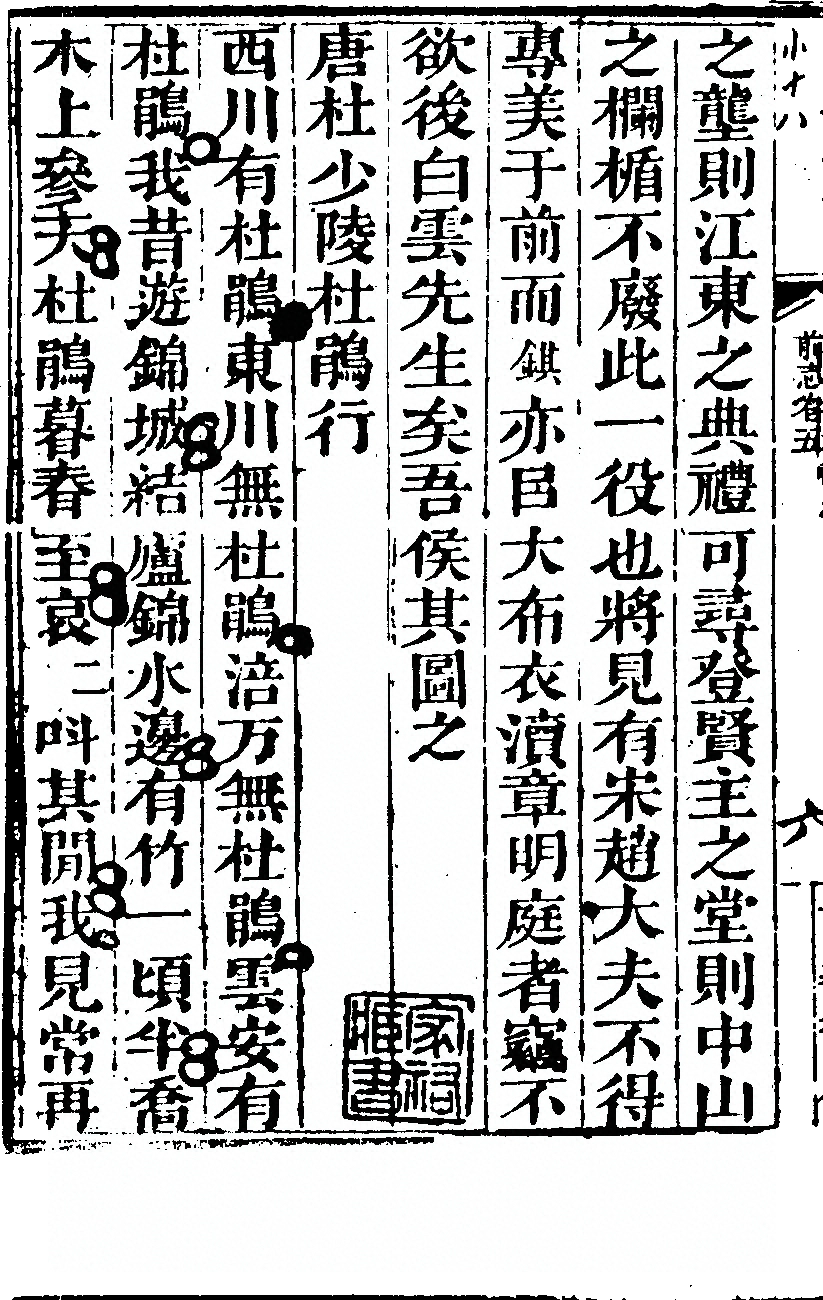 之蘢則江東之典禮可尋登賢主之堂則中山
之欄楯不廢此一役也將見有宋趙大夫不得
專美于前而錤亦邑大布衣瀆章明庭者竊不
欲後白雲先生矣吾侯其圖之
唐杜少陵杜鵑行
西川有杜鵑東川無杜鵑涪万無杜鵑雲安有
杜鵑我昔遊錦城結廬錦水邊有竹一頃半喬
木上參天杜鵑暮春至哀二呌其間我見常再
六